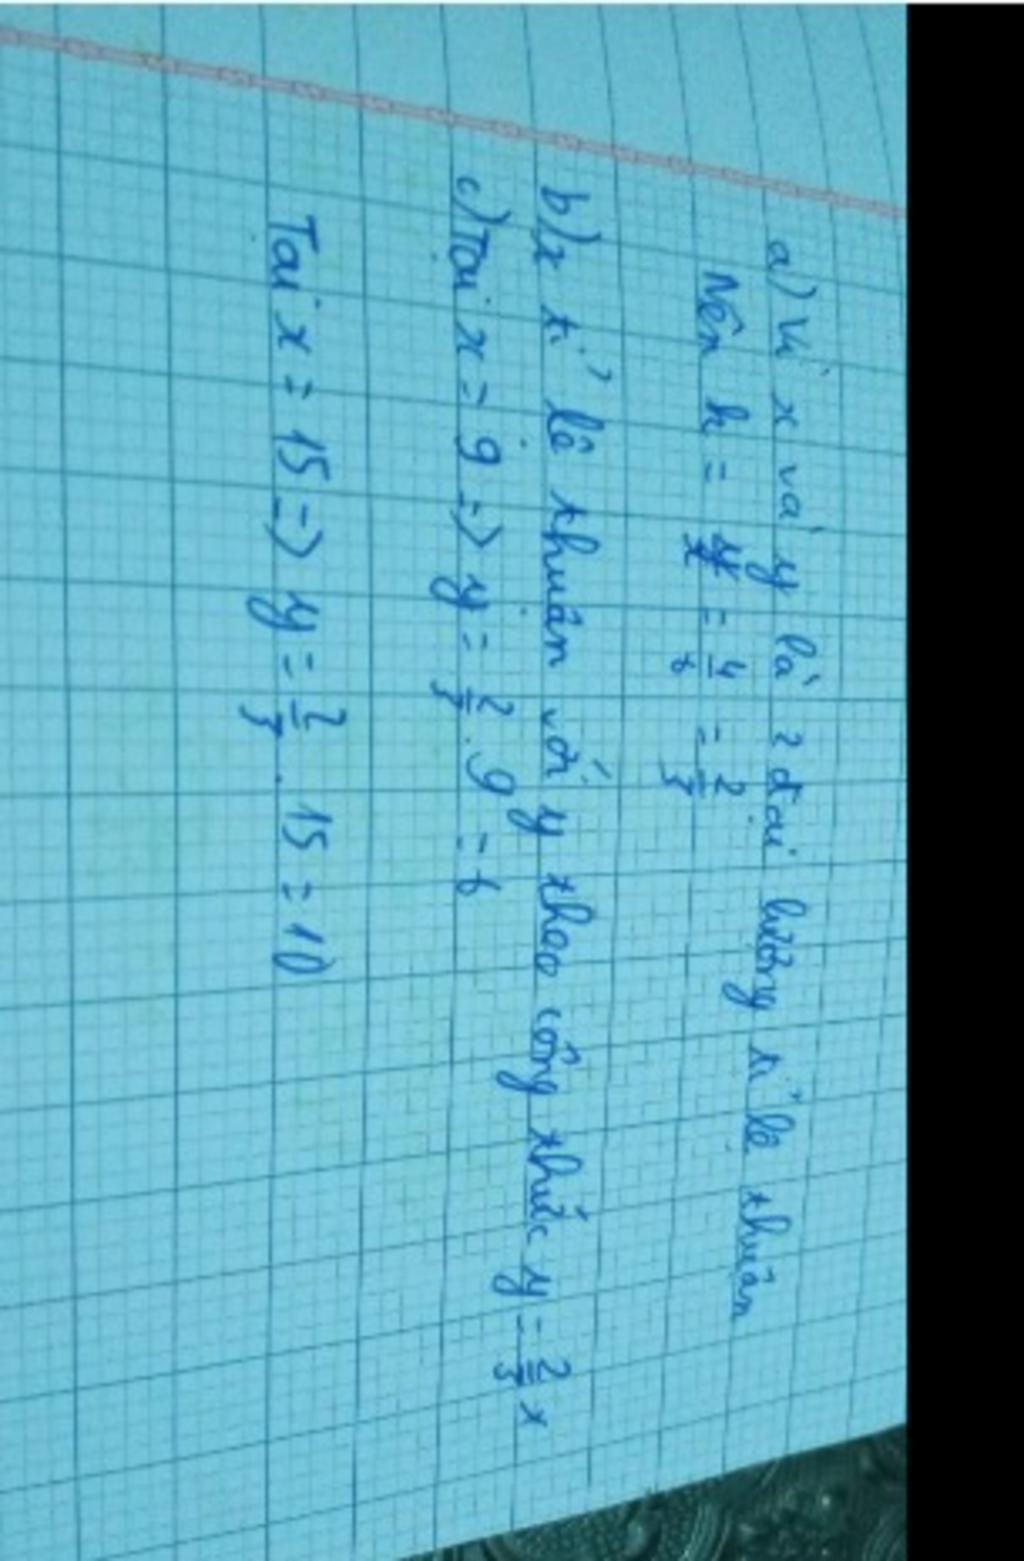 a) Vì x và y là 2 đại lượng tỉ lệ thuận
Nên k = y/x = 4/6 = 2/3
b) x tỉ lệ thuận với y theo công thức y = 2/3 x
c) Tại x = 9 => y = 2/3 . 9 = 6
Tại x = 15 => y = 2/3 . 15 = 10